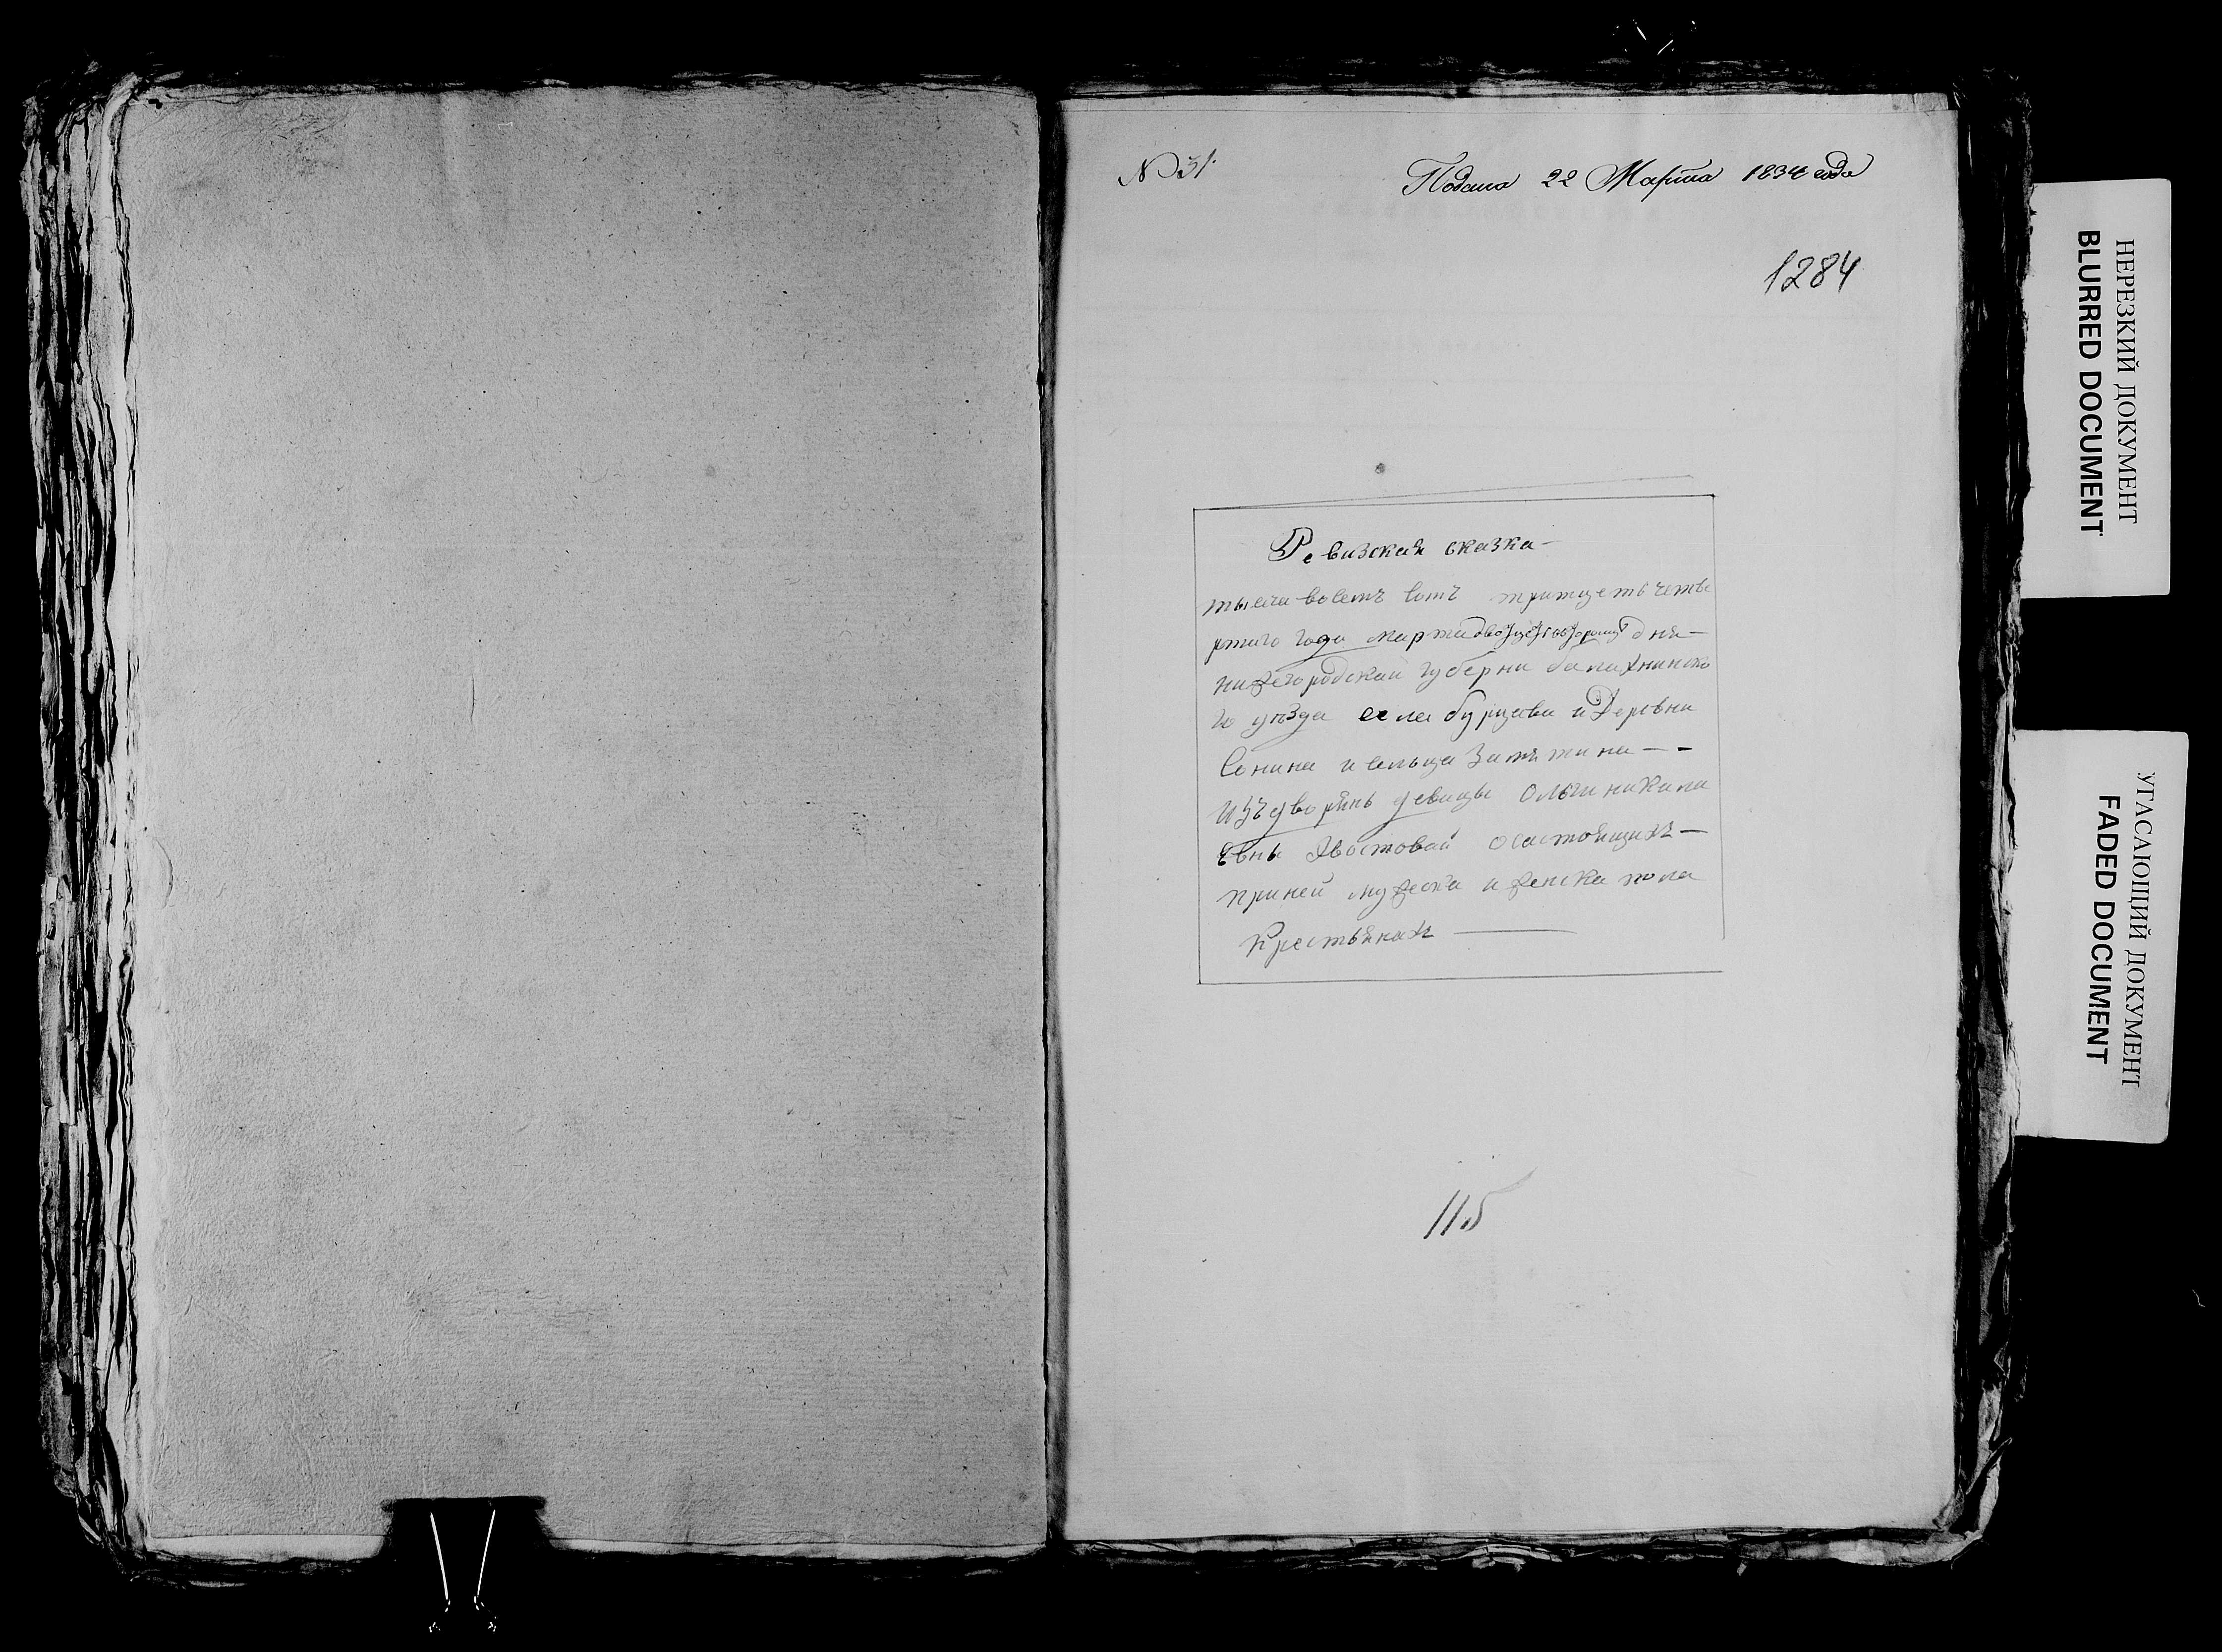 N 31
Подана 22 Марта 1834 года
1284
Ревизская сказка
тысеча восемъ сотъ тритцеть четве
ртаго года марта двадцеть втораго дня
нижегородскай губерни балахнинско
го уѣзда села бурцова и Деревни
Сонина и сельца Замятина
изъ дворянъ девицы Ольги никала
евны Хвостовай осастоящихъ
приней мужеска и женска пола
Крестьянахъ
115
НЕРЕЗКИЙ ДОКУМЕНТ
BLURRED DOCUMENT
УГАСАЮЩИЙ ДОКУМЕНТ
FADED DOCUMENT